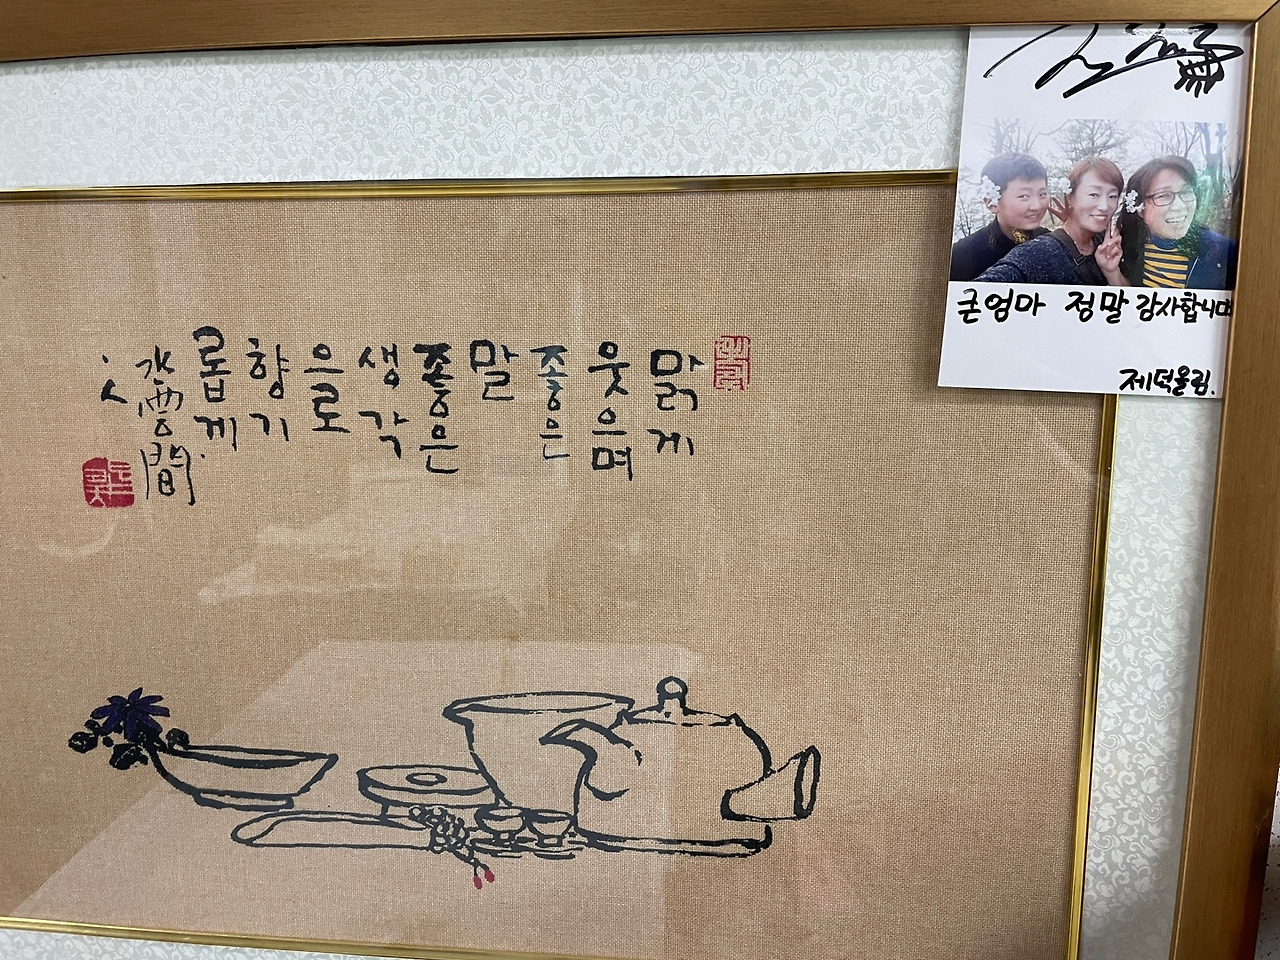 맑게
웃으며
좋은
말
좋은
생각
으로
향기
롭게
水雲間
큰엄마 정말 감사합니다
제덕올림.